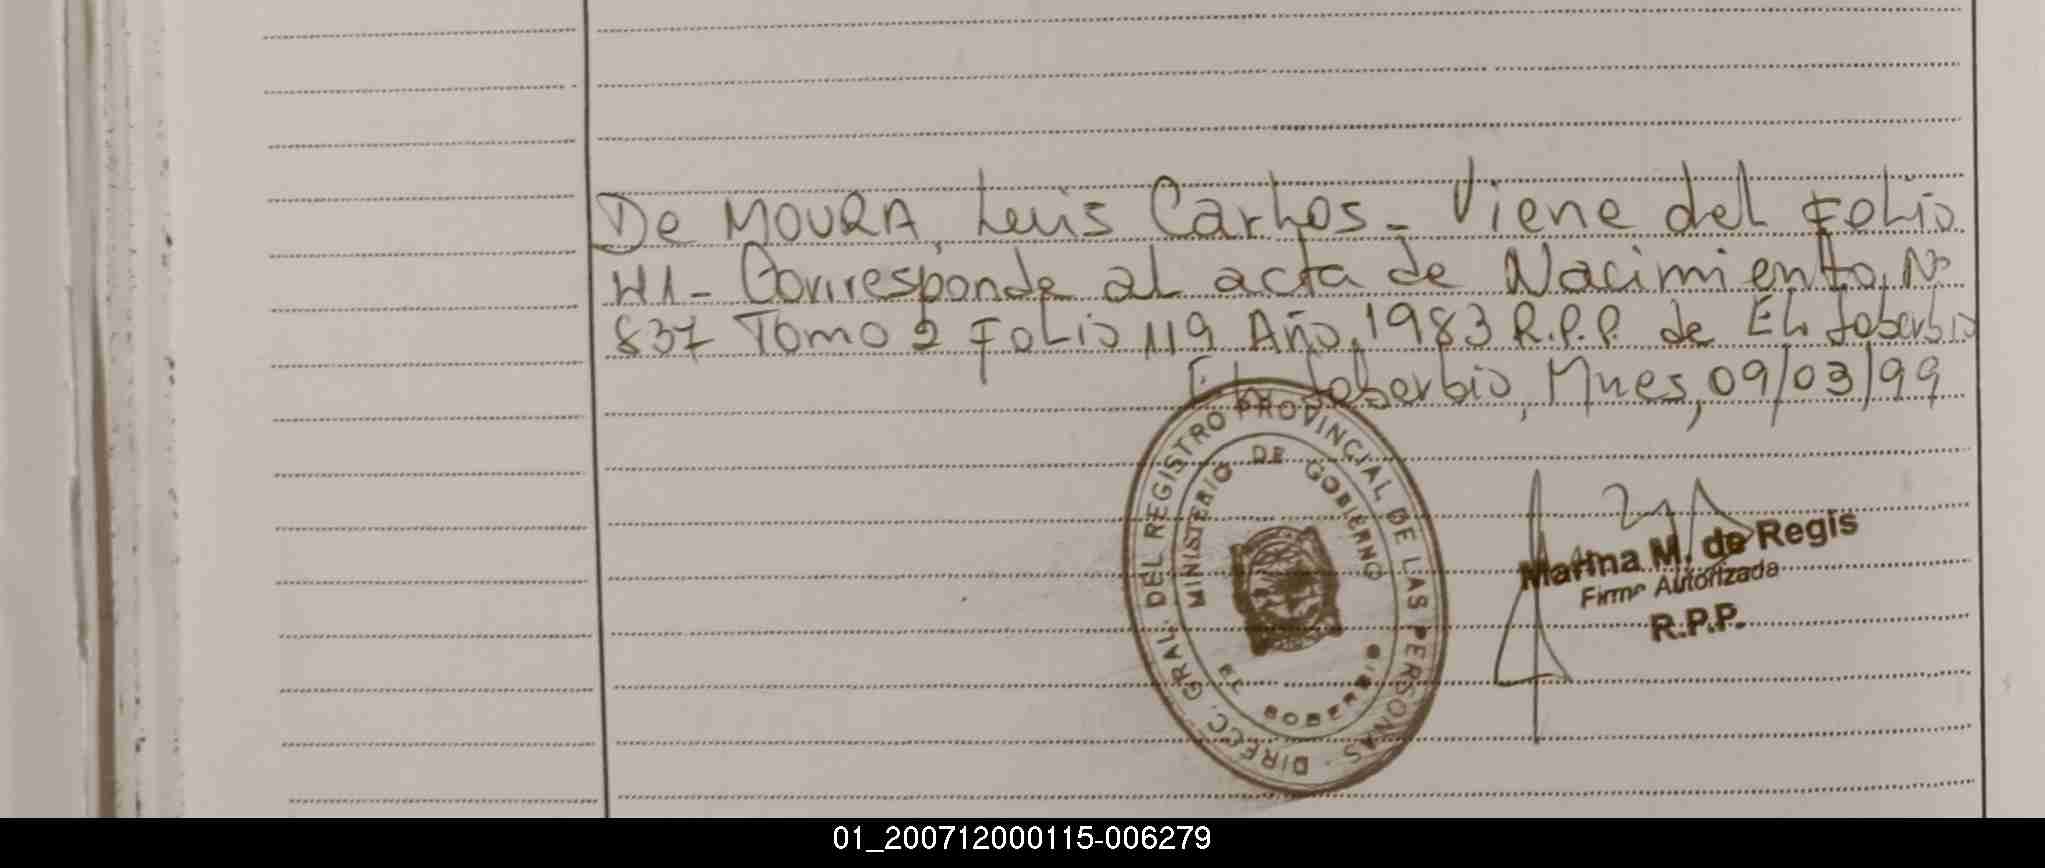 De MOURA, Luis Carlos_ Viene del Folio
41_ Corresponde al acta de Nacimiento, Nº
837 Tomo 2 Folio 119 Año, 1983 R.P.P. de El Soberbio
El Soberbio, Mnes, 09/03/99
DIRECC. GRAL. DEL REGISTRO PROVINCIAL DE LAS PERSONAS
MINISTERIO DE GOBIERNO
SOBERBIO
Marina M. de Regis
Firma Autorizada
R.P.P.
01_200712000115-006279